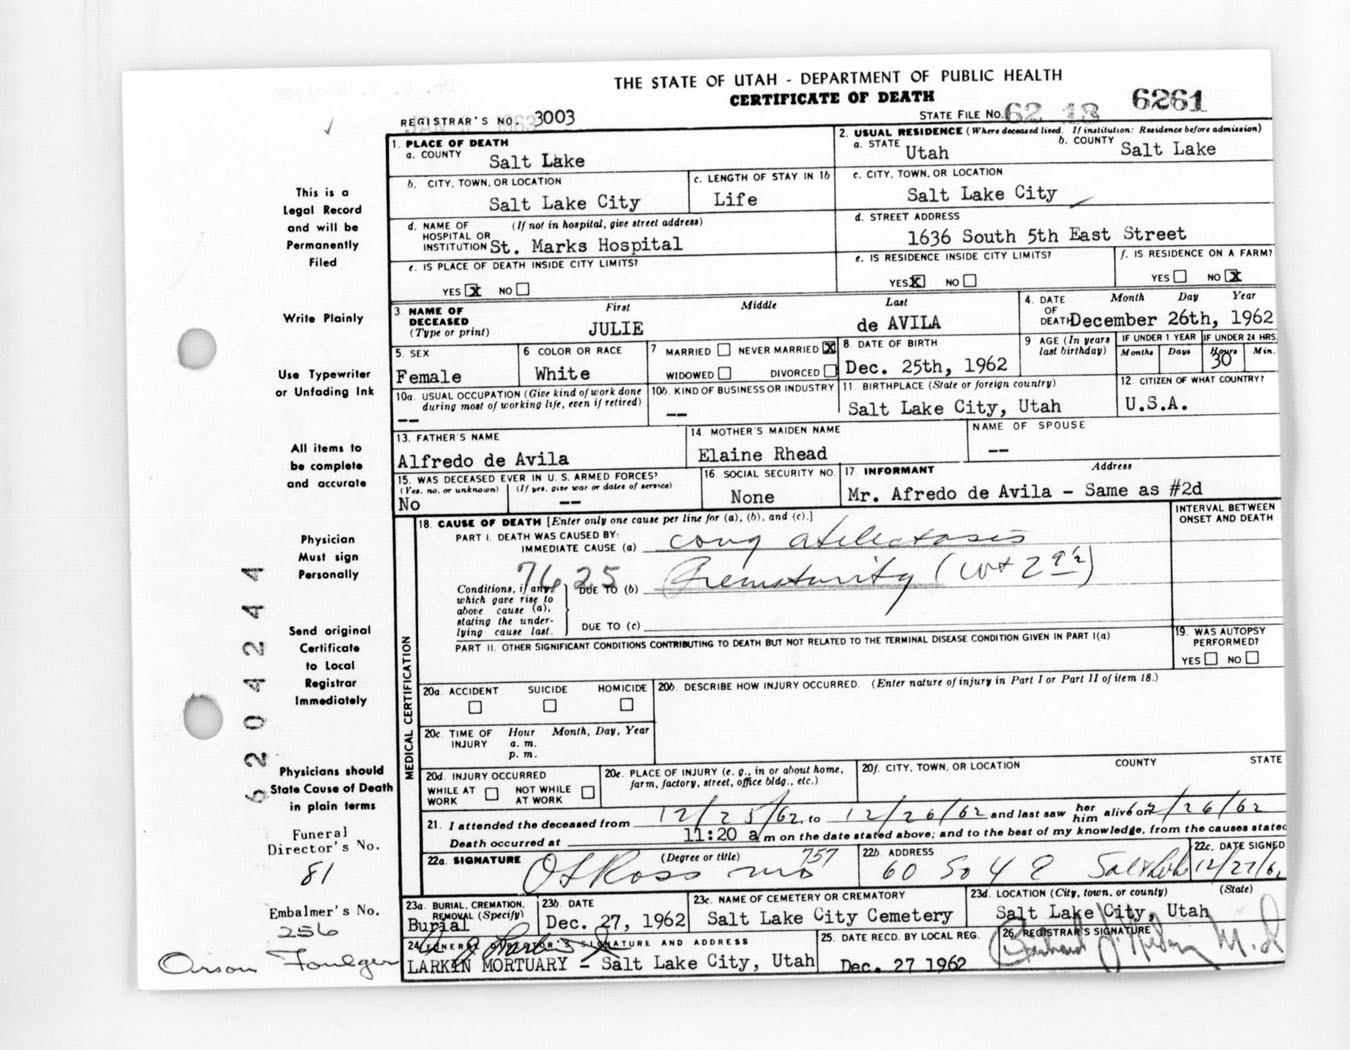 THE STATE OF UTAH - DEPARTMENT OF PUBLIC HEALTH
CERTIFICATE OF DEATH
REGISTRAR'S NO. 3003
STATE FILE NO. 62 18 6261
1. PLACE OF DEATH
a. COUNTY Salt Lake
2. USUAL RESIDENCE (Where deceased lived. If institution: Residence before admission)
a. STATE Utah b. COUNTY Salt Lake
b. CITY, TOWN, OR LOCATION Salt Lake City
c. LENGTH OF STAY IN 1b Life
c. CITY, TOWN, OR LOCATION Salt Lake City
d. NAME OF HOSPITAL OR INSTITUTION (If not in hospital, give street address) St. Marks Hospital
d. STREET ADDRESS 1636 South 5th East Street
e. IS PLACE OF DEATH INSIDE CITY LIMITS?
YES X NO
e. IS RESIDENCE INSIDE CITY LIMITS?
YES X NO
f. IS RESIDENCE ON A FARM?
YES NO X
3. NAME OF DECEASED (Type or print)
First Middle Last
JULIE de AVILA
4. DATE OF DEATH Month Day Year
December 26th, 1962
5. SEX Female
6 COLOR OR RACE White
7 MARRIED NEVER MARRIED X
WIDOWED DIVORCED
8 DATE OF BIRTH Dec. 25th, 1962
9 AGE (In years last birthday)
IF UNDER 1 YEAR Months Days
IF UNDER 24 HRS. Hours Min.
30
10a. USUAL OCCUPATION (Give kind of work done during most of working life, even if retired) --
10b. KIND OF BUSINESS OR INDUSTRY --
11. BIRTHPLACE (State or foreign country) Salt Lake City, Utah
12. CITIZEN OF WHAT COUNTRY? U.S.A.
13. FATHER'S NAME Alfredo de Avila
14. MOTHER'S MAIDEN NAME Elaine Rhead
NAME OF SPOUSE --
15. WAS DECEASED EVER IN U. S. ARMED FORCES?
(Yes, no, or unknown) (If yes, give war or dates of service)
No --
16. SOCIAL SECURITY NO. None
17 INFORMANT Address
Mr. Afredo de Avila - Same as #2d
18. CAUSE OF DEATH [Enter only one cause per line for (a), (b), and (c).]
INTERVAL BETWEEN ONSET AND DEATH
PART I. DEATH WAS CAUSED BY:
IMMEDIATE CAUSE (a) cong atelectasis
7625
Conditions, if any, which gave rise to above cause (a), stating the underlying cause last.
DUE TO (b) Prematurity (wt 2
DUE TO (c)
PART II. OTHER SIGNIFICANT CONDITIONS CONTRIBUTING TO DEATH BUT NOT RELATED TO THE TERMINAL DISEASE CONDITION GIVEN IN PART I(a)
19. WAS AUTOPSY PERFORMED?
YES NO
MEDICAL CERTIFICATION
20a. ACCIDENT SUICIDE HOMICIDE
20b. DESCRIBE HOW INJURY OCCURRED. (Enter nature of injury in Part I or Part II of item 18.)
20c. TIME OF INJURY Hour Month, Day, Year
a. m.
p. m.
20d. INJURY OCCURRED
WHILE AT WORK NOT WHILE AT WORK
20e. PLACE OF INJURY (e. g., in or about home, farm, factory, street, office bldg., etc.)
20f. CITY, TOWN, OR LOCATION COUNTY STATE
21. I attended the deceased from 12/25/62, to 12/26/62 and last saw her him alive on 12/26/62
Death occurred at 11:20 a m on the date stated above; and to the best of my knowledge, from the causes stated
22a. SIGNATURE (Degree or title) O S Ross MD 757
22b ADDRESS 60 So 4 E Salt Lake
22c. DATE SIGNED 12/27/6
23a. BURIAL, CREMATION, REMOVAL (Specify) Burial
23b. DATE Dec. 27, 1962
23c. NAME OF CEMETERY OR CREMATORY Salt Lake City Cemetery
23d. LOCATION (City, town, or county) (State)
Salt Lake City, Utah
24 FUNERAL DIRECTOR'S SIGNATURE AND ADDRESS
LARKIN MORTUARY - Salt Lake City, Utah
25. DATE RECD. BY LOCAL REG.
Dec. 27 1962
26. REGISTRAR'S SIGNATURE
M.D.
This is a
Legal Record
and will be
Permanently
Filed
Write Plainly
Use Typewriter
or Unfading Ink
All items to
be complete
and accurate
Physician
Must sign
Personally
Send original
Certificate
to Local
Registrar
Immediately
Physicians should
State Cause of Death
in plain terms
Funeral
Director's No.
81
Embalmer's No.
256
Orson Foulger
62 04244